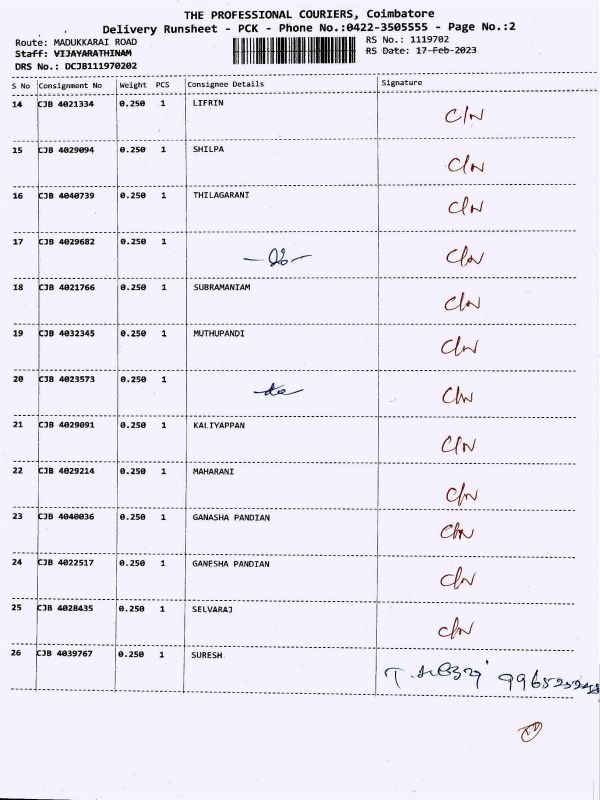 THE PROFESSIONAL COURIERS, Coimbatore
Delivery Runsheet - PCK - Phone No.:0422-3505555 - Page No.:2
Route: MADUKKARAI ROAD RS No.: 1119702
Staff: VIJAYARATHINAM RS Date: 17-Feb-2023
DRS No.: DCJB111970202
S No Consignment No Weight PCS Consignee Details Signature
14 CJB 4021334 0.250 1 LIFRIN C/N
15 CJB 4029094 0.250 1 SHILPA C/N
16 CJB 4040739 0.250 1 THILAGARANI C/N
17 CJB 4029682 0.250 1 C/N
18 CJB 4021766 0.250 1 SUBRAMANIAM C/N
19 CJB 4032345 0.250 1 MUTHUPANDI C/N
20 CJB 4023573 0.250 1 C/N
21 CJB 4029091 0.250 1 KALIYAPPAN C/N
22 CJB 4029214 0.250 1 MAHARANI C/N
23 CJB 4040036 0.250 1 GANASHA PANDIAN C/N
24 CJB 4022517 0.250 1 GANESHA PANDIAN C/N
25 CJB 4028435 0.250 1 SELVARAJ C/N
26 CJB 4039767 0.250 1 SURESH